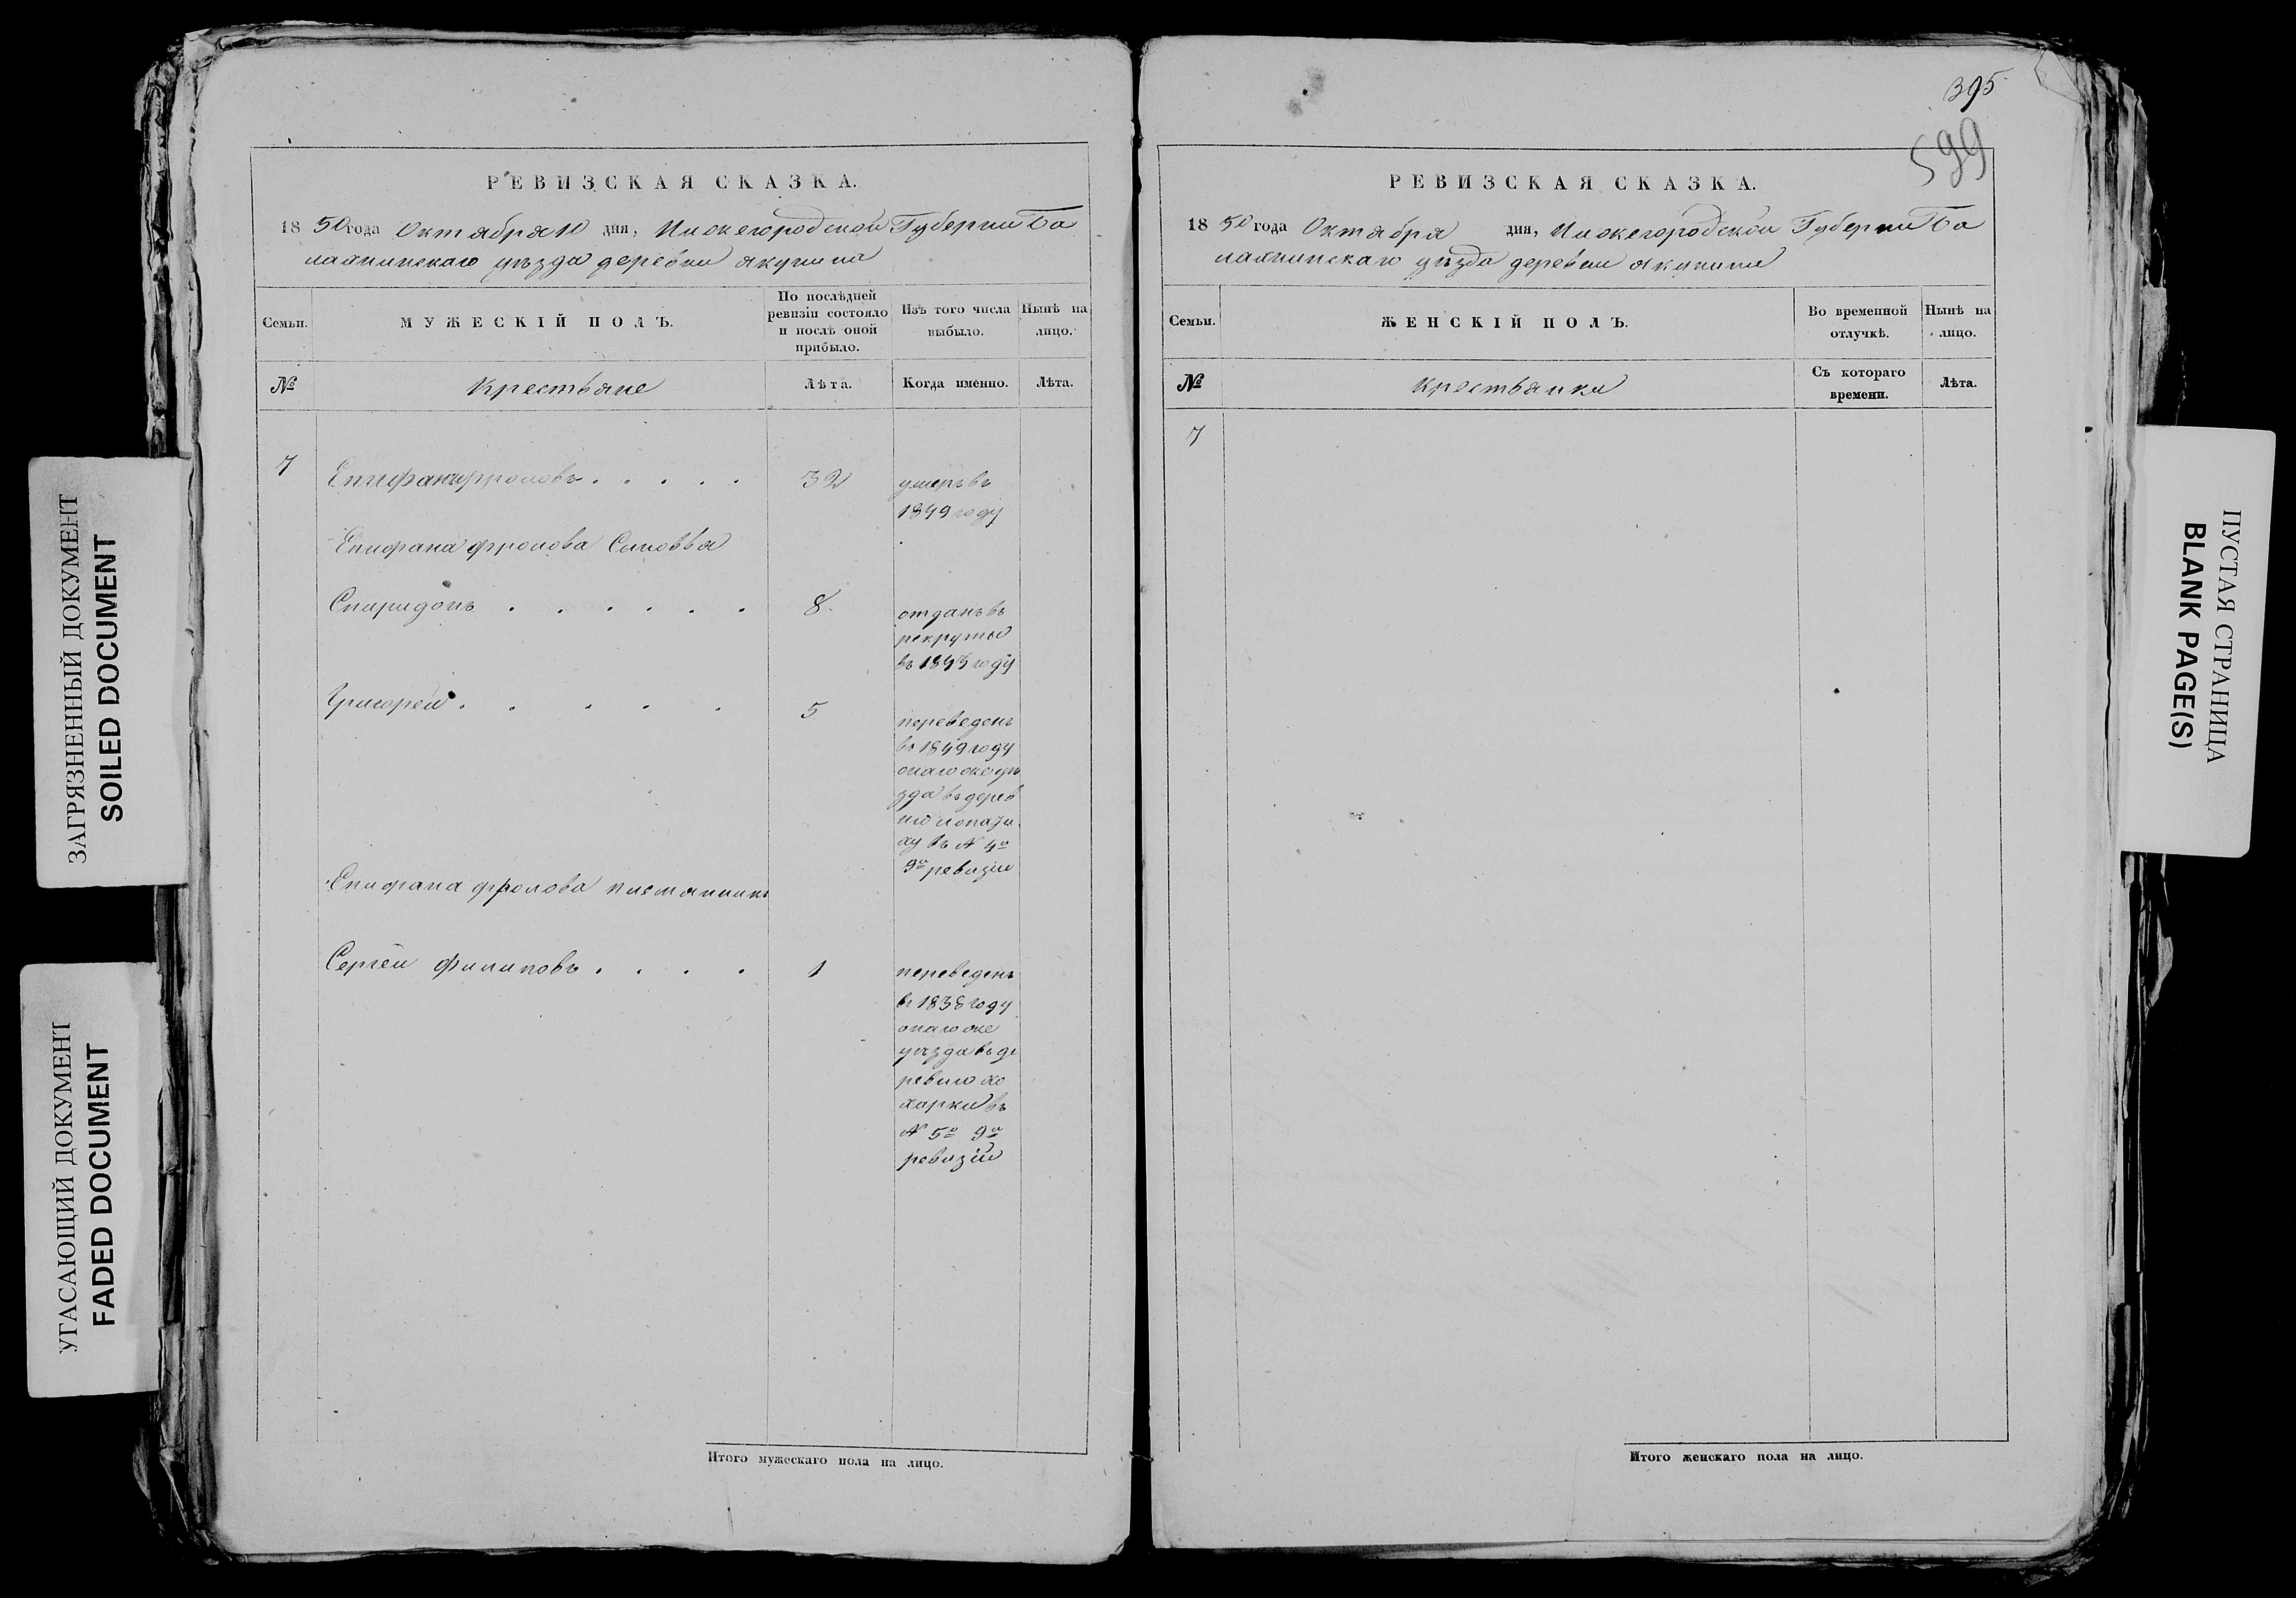 395
599
РЕВИЗСКАЯ СКАЗКА.
1850 года Октября 10 дня, Нижегородской Губернии Ба
лахнинскаго уѣзда деревни Якунина
Семьи.
МУЖЕСКІЙ ПОЛЪ.
По послѣдней
ревизіи состояло
и послѣ оной
прибыло.
Изъ того числа
выбыло.
Нынѣ на
лицо.
№
Крестьяне
Лѣта.
Когда именно.
Лѣта.
7
Епифанъ Фроловъ . . . . . 32 умеръ въ
1849 году
Епифана Фролова Сыновья
Спиридонъ . . . . . . 8 отданъ въ
рекруты
въ 1843 году
Григорей . . . . . 5 переведенъ
въ 1849 году
онаго же уѣ
зда въ дерев
ню
ху въ № 4й
9й ревизіи
Епифана Фролова
Сергей Филиповъ . . . . 1 переведенъ
въ 1838 году
онаго же
уѣзда въ де
ревню хо
харки въ
№ 5й 9й
ревизіи
Итого мужескаго пола на лицо.
РЕВИЗСКАЯ СКАЗКА.
1850 года Октября дня, Нижегородской Губернии Ба
лахнинскаго уѣзда деревни Якунина
Семьи.
ЖЕНСКІЙ ПОЛЪ.
Во временной
отлучкѣ.
Нынѣ на
лицо.
№
Крестьянки
Съ котораго
времени.
Лѣта.
7
Итого женскаго пола на лицо.
ЗАГРЯЗНЕННЫЙ ДОКУМЕНТ
SOILED DOCUMENT
УГАСАЮЩИЙ ДОКУМЕНТ
FADED DOCUMENT
ПУСТАЯ СТРАНИЦА
BLANK PAGE(S)